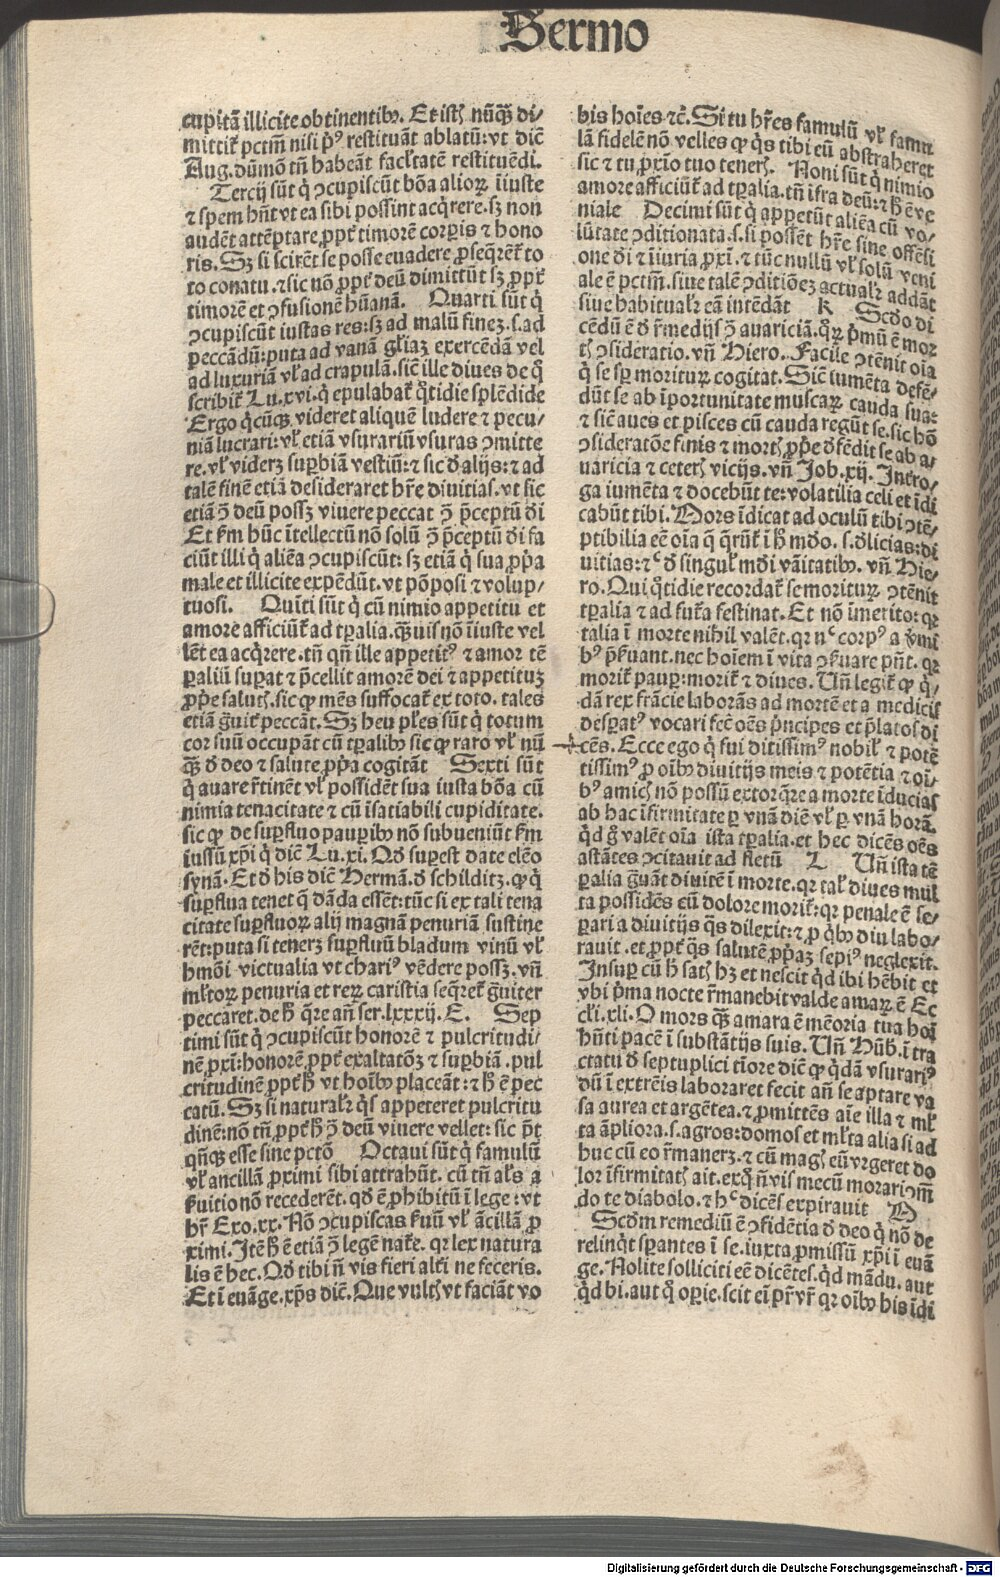 Sermo
cupitā illicite obtinentibꝰ. Et istꝭ nūqͣꝫ di⸗
mittit᷑ pctm̄ nisi pͥꝰ restituāt ablatū: vt dic̄
Aug. dūmō tn̄ habeāt facl̓tatē restituēdi.
Tercij sūt qͥ ↄcupiscūt bōa alioꝝ īiuste
⁊ spem hn̄t vt ea sibi possint acq̄rere. sꝫ non
audēt attēptare ꝓpt̓ timorē corꝑis ⁊ hono
ris. Sꝫ si scirēt se posse euadere ꝓseq̄rēt᷑ to
to conatu. ⁊ sic nō ꝓpt̓ deū dimittūt sꝫ ꝓpt̓
timorē et ↄfusionē hūanā. Quarti sūt qͥ
ↄcupiscūt iustas res: sꝫ ad malū finez. s. ad
peccādū: puta ad vanā gl̓iaꝫ exercēdā vel
ad luxuriā vl̓ ad crapulā. sic̄ ille diues de qͦ
scribit᷑ Lu. xvi. qͥ epulabat᷑ qͦtidie splēdide
Ergo qͥcūqꝫ videret aliquē ludere ⁊ pecu⸗
niā lucrari: vl̓ etiā vsurariū vsuras ↄmitte
re. vl̓ viderꝫ suꝑbiā vestiū: ⁊ sic ð alijs: ⁊ ad
talē finē etiā desideraret hr̄e diuitias. vt sic
etiā ↄ̄ deū possꝫ viuere peccat ↄ̄ p̄ceptū ði
Et ẜm hūc ītellectū nō solū ↄ̄ p̄ceptū ði fa
ciūt illi qͥ aliēa ↄcupiscūt: sꝫ etiā qͥ sua ꝓpͥa
male et illicite expēdūt. vt pōposi ⁊ volup⸗
tuosi. Quīti sūt qͥ cū nimio appetitu et
amore afficiūt᷑ ad tꝑalia. qͣꝫuis nō īiuste vel
lēt ea acq̄rere. tn̄ qn̄ ille appetitꝰ ⁊ amor tē
ꝑaliū suꝑat ⁊ p̄cellit amorē dei ⁊ appetituꝫ
ꝓpͥe salutꝭ. sic ꝙ mēs suffocat᷑ ex toto. tales
etiā ḡuit᷑ peccāt. Sꝫ heu pl̓es sūt qͥ totum
cor suū occupāt cū tꝑalibꝰ sic ꝙ raro vl̓ nū
qͣꝫ ð deo ⁊ salute ꝓpͥa cogitāt Sexti sūt
qͥ auare r̄tinēt vl̓ possidēt sua iusta bōa cū
nimia tenacitate ⁊ cū īsatiabili cupiditate.
sic ꝙ de suꝑfluo pauꝑibꝰ nō subueniūt ẜm
iussū xp̄i qͥ dic̄ Lu. xi. Qð suꝑest date elēo
synā. Et ð his dic̄ Hermā. ð schilditz. ꝙ qͥ
suꝑflua tenet qͣ dāda essēt: tūc si ex tali tena
citate suꝑfluoꝝ alij magnā penuriā sustine
rēt: puta si tenerꝫ suꝑfluū bladum vinū vl̓
hmōi victualia vt chariꝰ vēdere possꝫ. vn̄
ml̓toꝝ penuria et reꝝ caristia seq̄ret᷑ ḡuiter
peccaret. de ħ q̄re an̄ ser. lxxxij. E. Sep
timi sūt qͥ ↄcupiscūt honorē ⁊ pulcritudi⸗
nē ꝓxi: honorē ꝓpt̓ exaltatōꝫ ⁊ suꝑbiā. pul
critudinē ꝓpt̓ ħ vt hoībꝰ placeāt: ⁊ ħ ē pec
catū. Sꝫ si naturalr̓ qͥs appeteret pulcritu
dinē: nō tn̄ ꝓpt̓ ħ ↄ̄ deū viuere vellet: sic p̄t
qn̄qꝫ esse sine pctō Octaui sūt qͥ famulū
vl̓ ancillā ꝓximi sibi attrahūt. cū tn̄ al̓s a
ẜuitio nō recederēt. qð ē ꝓhibitū ī lege: vt
hr̄ Exo. xx. Nō ↄcupiscas ẜuū vl̓ ācillā ꝓ
ximi. Itē ħ ē etiā ↄ̄ legē nat᷑e. qr lex natura
lis ē hec. Qð tibi n̄ vis fieri alt̓i ne feceris.
Et ī euāge. xp̄s dic̄. Que vultꝭ vt faciāt vo
bis hoīes ⁊c̄. Si tu hr̄es famulū vl̓ famu
lā fidelē nō velles ꝙ qͥs tibi eū abstraheret
sic ⁊ tu ꝓxīo tuo tenerꝭ. Noni sūt qͥ nimio
amore afficiūt᷑ ad tꝑalia. tn̄ īfra deū: ⁊ ħ ē ve
niale Decimi sūt qͥ appetūt aliēa cū vo⸗
lūtate ↄditionata. s. si possēt hr̄e sine offēsi
one ði ⁊ iīuria ꝓxī. ⁊ tūc nullū vl̓ solū veni
ale ē pctm̄. siue talē ↄditiōeꝫ actualr̓ addāt
siue habitualr̓ eā intēdāt K Scðo di
cēdū ē ð r̄medijs ↄ̄ auariciā. qͦꝝ p̄mū ē mor
tꝭ ↄsideratio. vn̄ Hiero. Facile ↄtēnit oīa
qͥ se sꝑ moriturꝝ cogitat. Sic̄ iumēta defē⸗
dūt se ab īportunitate muscaꝝ cauda sua:
⁊ sic̄ aues et pisces cū cauda regūt se. sic hō
ↄsideratōe finis ⁊ mortꝭ ꝓpͥe ðfēdit se ab a⸗
uaricia ⁊ ceterꝭ vicijs. vn̄ Job. xij. Intro⸗
ga iumēta ⁊ docebūt te: volatilia celi et īdi
cabūt tibi. Mors īdicat ad oculū tibi ↄtē⸗
ptibilia eē oīa q̄ q̄rūt᷑ ī ħ mðo. s. ðlicias: di
uitias: ⁊ᶜ ð singul̓ mði vāitatibꝰ. vn̄ Hie⸗
ro. Qui qͦtidie recordat᷑ se moriturꝝ ↄtēnit
tꝑalia ⁊ ad fut᷑a festinat. Et nō īmerito: qr
talia ī morte nihil valēt. qr nᶜ corpꝰ a v̓mi
bꝰ p̄ẜuant. nec hoīem ī vita ↄẜuare pn̄t. qr
morit᷑ pauꝑ: morit᷑ ⁊ diues. Un̄ legit᷑ ꝙ qͥ⸗
dā rex frācie laborās ad mortē et a medicis
desꝑatꝰ vocari fec̄ oēs p̄ncipes et p̄latos di
cēs. Ecce ego qͥ fui ditissimꝰ nobil̓ ⁊ potē
tissimꝰ ꝓ oībꝰ diuitijs meis ⁊ potētia ⁊ oī⸗
bꝰ amicꝭ nō possū extorq̄re a morte īducias
ab hac īfirmitate ꝑ vnā diē vl̓ ꝑ vnā horā.
qͥd ḡ valēt oīa ista tꝑalia. et hec dicēs oēs
astātes ↄcitauit ad fletū L Un̄ ista tē
ꝑalia ḡuāt diuitē ī morte. qr tal̓ diues mul
ta possidēs cū dolore morit᷑: qr penale ē se⸗
ꝑari a diuitijs qͣs dilexit: ⁊ ꝓ qͥbꝰ diu labo⸗
rauit. et ꝓpt̓ qͣs salutē ꝓpͥaꝫ sepiꝰ neglexit.
Insuꝑ cū ħ satꝭ hꝫ et nescit qͥd ibi hēbit et
vbi p̄ma nocte r̄manebit valde amaꝝ ē Ec
cl̓i. xli. O mors qͣꝫ amara ē mēoria tua hoī
hn̄ti pacē ī substātijs suis. Un̄ Hūb̓. ī tra
ctatu ð septuplici tīore dic̄ ꝙ qͥdā vsurariꝰ
dū ī extrēis laboraret fecit an̄ se aptare va
sa aurea et argētea. ⁊ ꝓmittēs aīe illa ⁊ ml̓
ta āpliora. s. agros: domos et ml̓ta alia si ad
huc cū eo r̄manerꝫ. ⁊ cū magꝭ eū vrgeret do
lor īfirmitatꝭ ait. ex qͦ n̄ vis mecū morari ↄm̄
do te diabolo. ⁊ hᶜ dicēs expirauit M
Scðm remediū ē ↄfidētia ð deo qͥ nō de
relinqͥt sꝑantes ī se. iuxta ꝓmissū xp̄i ī euā
ge. Nolite solliciti eē dicētes. qͥd mādu. aut
qͥd bi. aut qͦ oꝑie. scit eī pr̄ vr̄ qr oībꝰ his īdi
Digitalisierung gefördert durch die Deutsche Forschungsgemeinschaft - DFG